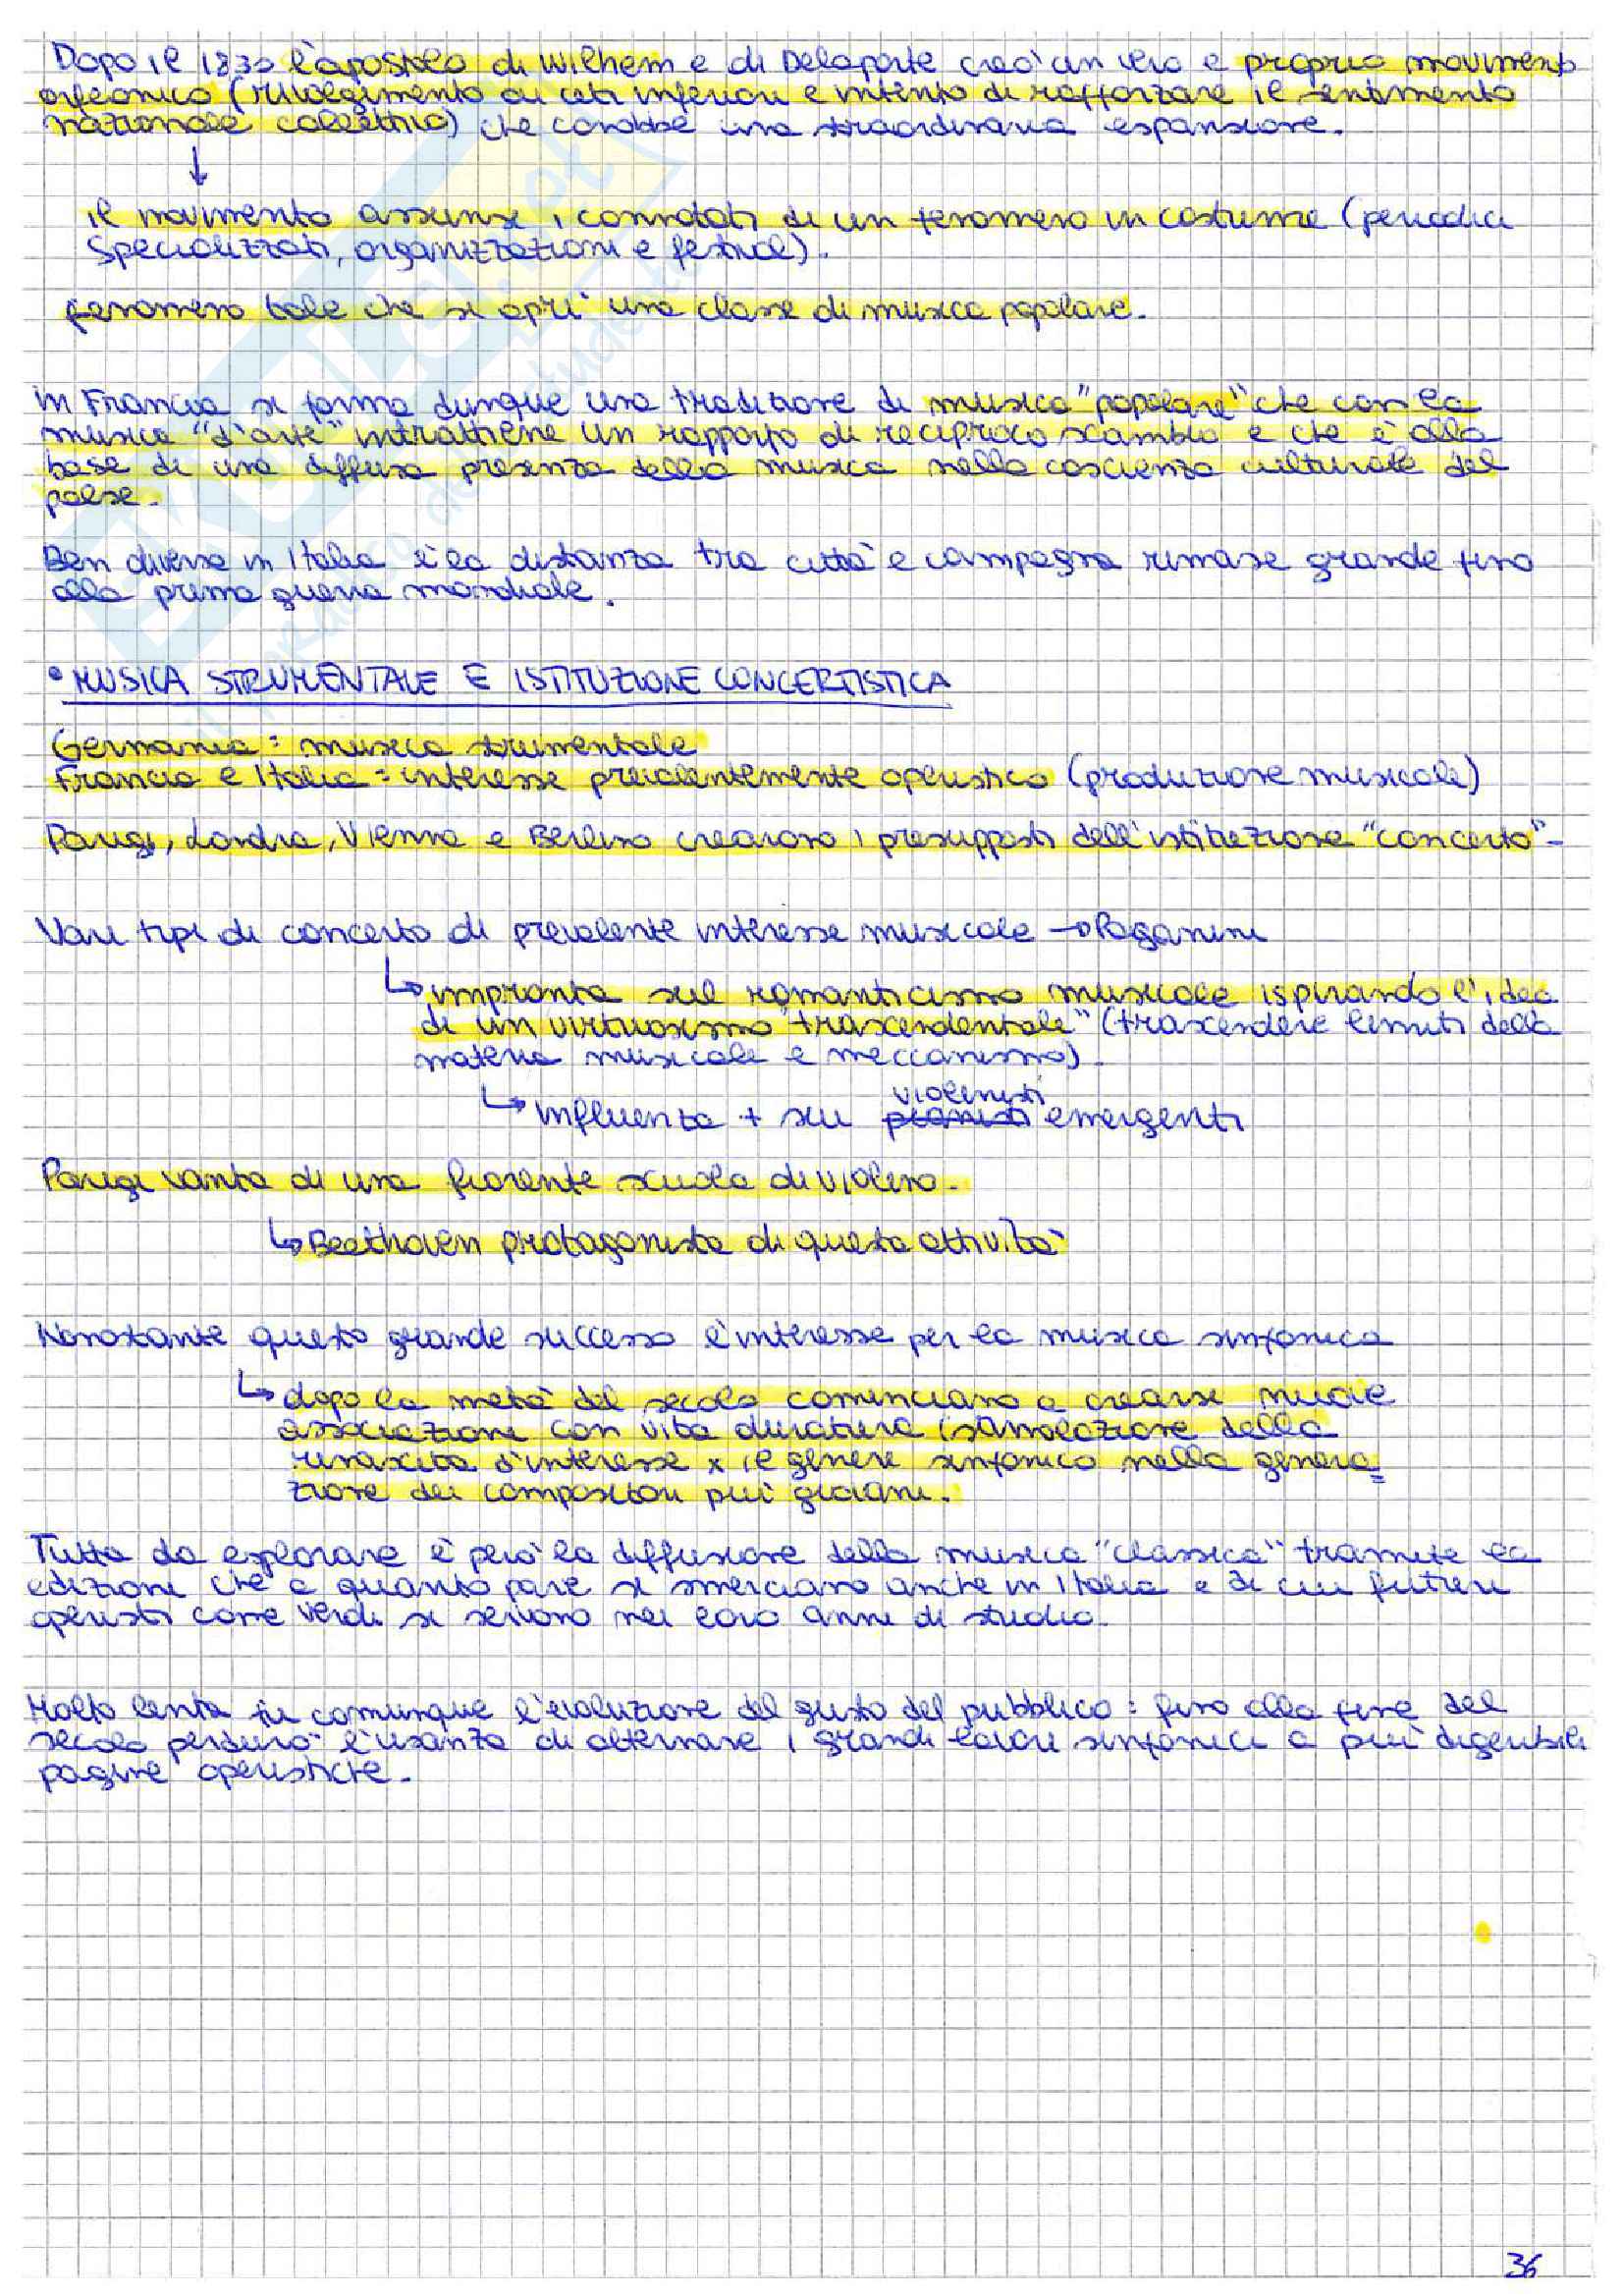 Dopo il 1830 l'apostolo di Wilhem e di Delaporte creò un vero e proprio movimento
orfeonico (rivolgimento ai ceti inferiori e intento di rafforzare il sentimento
nazionale collettivo) che conobbe una straordinaria espansione.
↓
il movimento assunse i connotati di un fenomeno in costume (periodici
specializzati, organizzazioni e festival).
fenomeno tale che si aprì una classe di musica popolare.
in Francia si forma dunque una tradizione di musica "popolare" che con la
musica "d'arte" intrattiene un rapporto di reciproco scambio e che è alla
base di una diffusa presenza della musica nella coscienza culturale del
paese.
Ben diversa in Italia è la distanza tra città e campagna rimase grande fino
alla prima guerra mondiale.
• MUSICA STRUMENTALE E ISTITUZIONE CONCERTISTICA
Germania = musica strumentale
Francia e Italia = interesse prevalentemente operistico (produzione musicale)
Parigi, Londra, Vienna e Berlino crearono i presupposti dell'istituzione "concerto".
Vari tipi di concerto di prevalente interesse musicale → Paganini
↳ impronta sul romanticismo musicale ispirando l'idea
di un virtuosismo "trascendentale" (trascendere limiti della
materia musicale e meccanismo).
violinisti
↳ influenza + sui pianisti emergenti
Parigi vanta di una fiorente scuola di violino.
↳ Beethoven protagonista di questa attività
Nonostante questo grande successo l'interesse per la musica sinfonica
↳ dopo la metà del secolo cominciano a crearsi nuove
associazioni con vita duratura (stimolazione della
rinascita d'interesse x il genere sinfonico nella genera=
zione dei compositori più giovani.
Tutta da esplorare è però la diffusione della musica "classica" tramite le
edizioni che a quanto pare si smerciano anche in Italia e di cui futuri
operisti come Verdi si servono nei loro anni di studio.
Molto lenta fu comunque l'evoluzione del gusto del pubblico: fino alla fine del
secolo perdurò l'usanza di alternare i grandi lavori sinfonici a più digeribili
pagine operistiche.
36